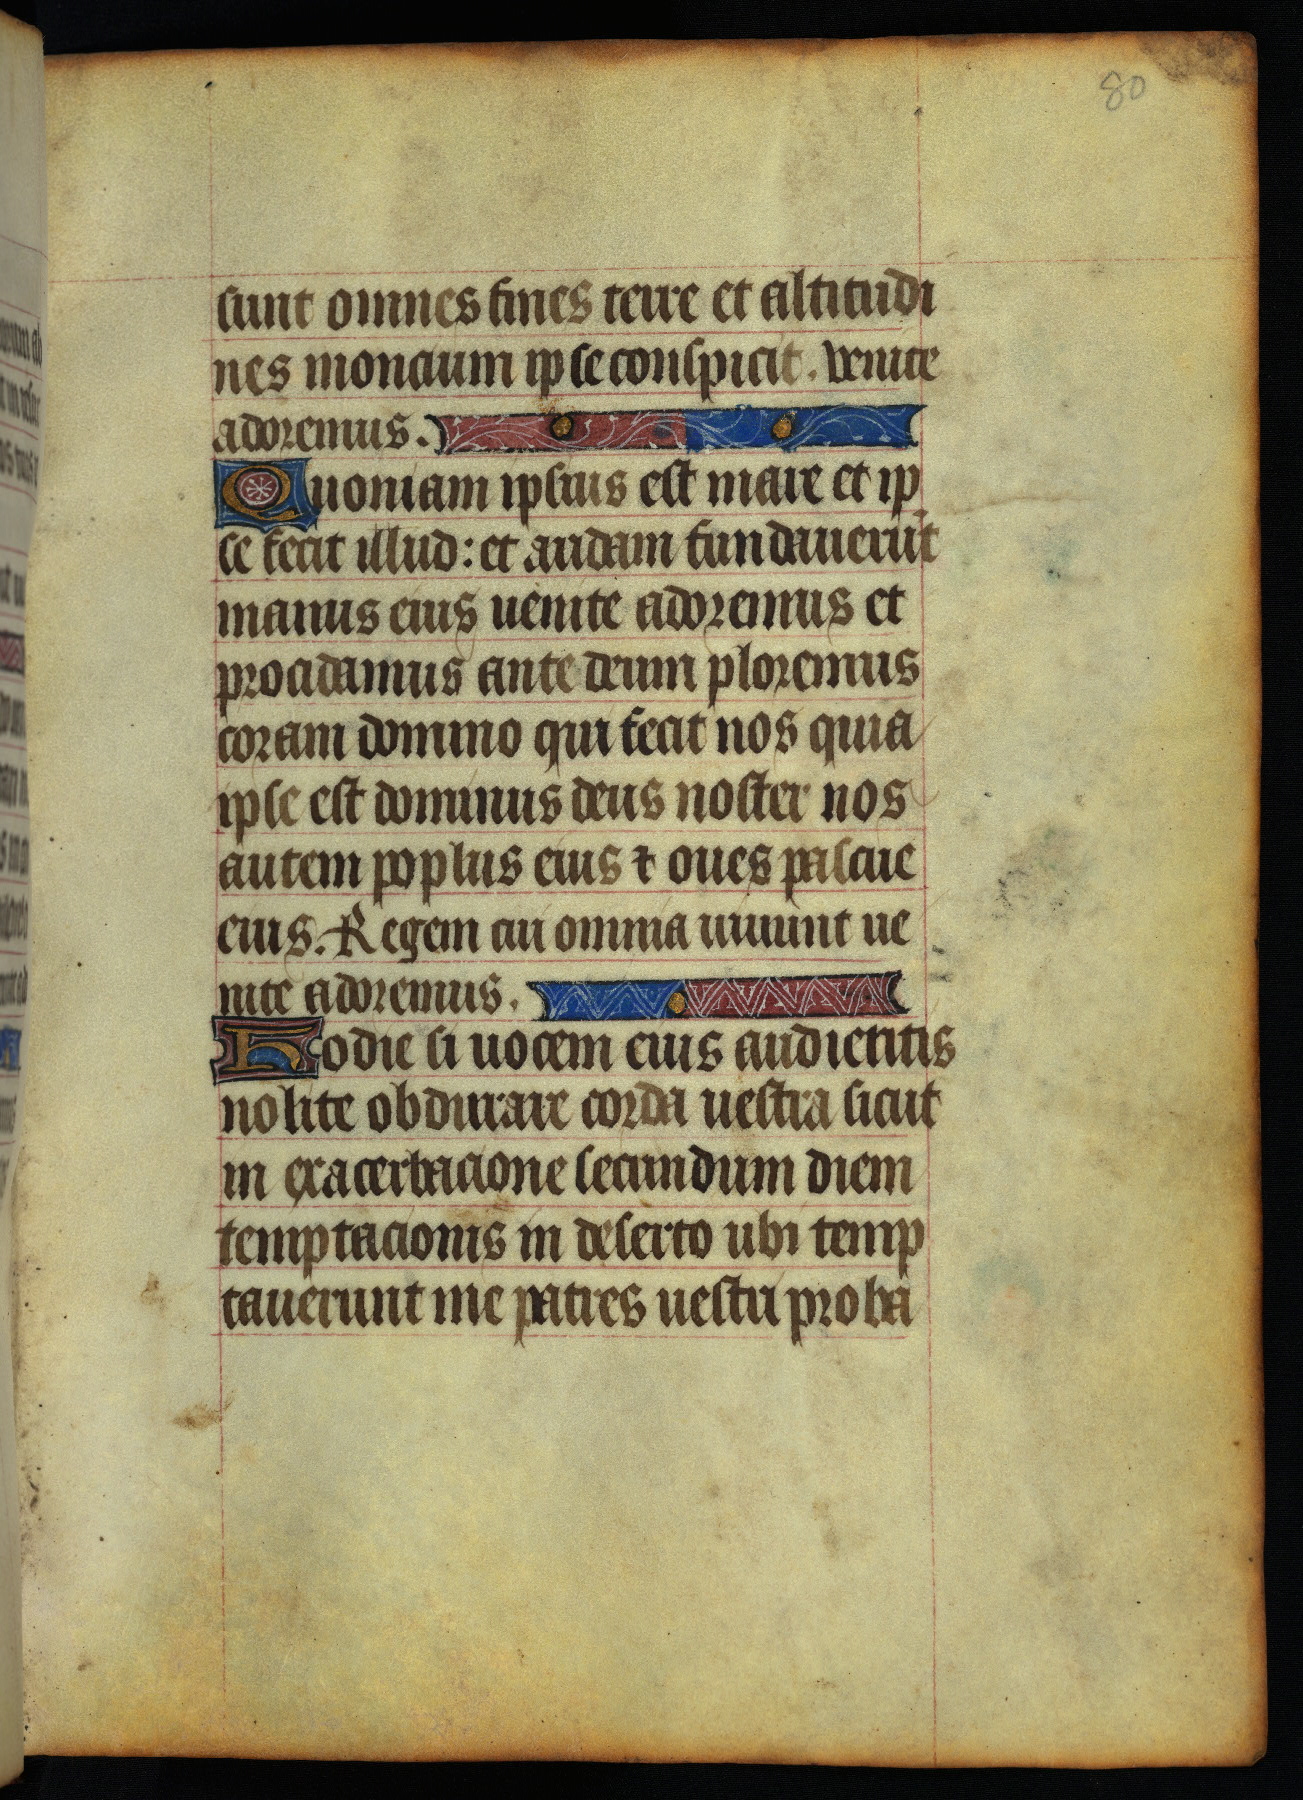 80
sunt omnes fines terre et altitudi
nes moncium ipse conspicit. venite
adoremus.
Quoniam ipsius est mare et ip
se fecit illud: et aridam fundauerūt
manus eius uenite adoremus et
procidamus ante deum ploremus
coram domino qui fecit nos quia
ipse est dominus deus noster nos
autem poplus eius ⁊ oues pascue
eius. Regem cui omnia uiuunt ue
nite adoremus.
Hodie si uocem eius audietitis
nolite obdurare corda uestra sicut
in exacerbacione secundum diem
temptacionis in deserto ubi temp
tauerunt me patres uestri proba